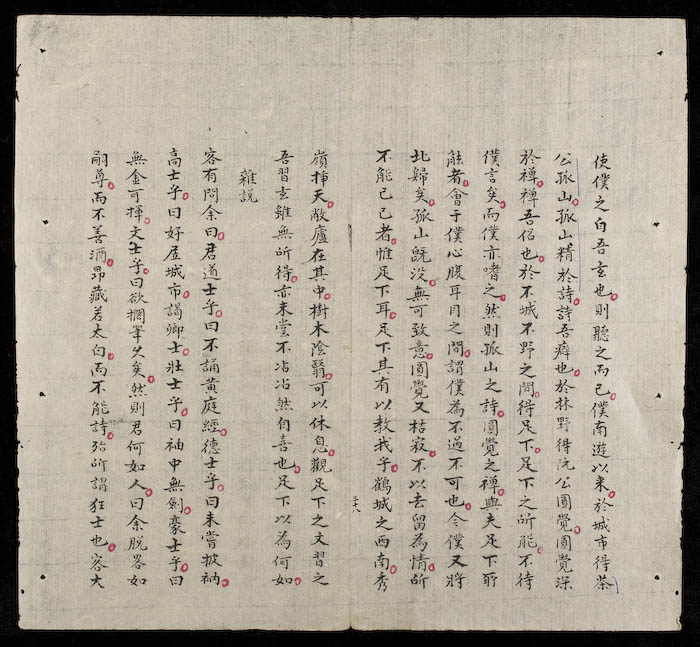 使僕之白吾玄也則聽之而已僕南遊以來於城市得茶
公孤山孤山精於詩詩吾癖也於林野得阮公圓覺圓覺深
於禪禪吾侶也於不城不野之間得足下足下之所能不待
僕言矣而僕亦嗜之然則孤山之詩圓覺之禪與夫足下所
能者會于僕心腹耳目之間謂僕為不過不可也今僕又將
北歸矣孤山旣沒無可致意圓覺又枯寂不以去留為情所
不能已已者惟足下耳足下其有以教我乎鶴城之西南秀
嶺揷天敝廬在其中樹木陰翳可以休息觀足下之文習之
吾習玄雖無所得亦未嘗不沾沾然自喜也足下以為何如
雜説
客有問余曰君道士乎曰不誦黃庭經德士乎曰未嘗披衲
高士乎曰好居城市謁卿士壯士乎曰袖中無劍豪士乎曰
無金可揮文士乎曰欲擱筆久矣然則君何如人曰余脫畧如
嗣尊而不善酒昂藏若太白而不能詩殆所謂狂士也客大
二十八